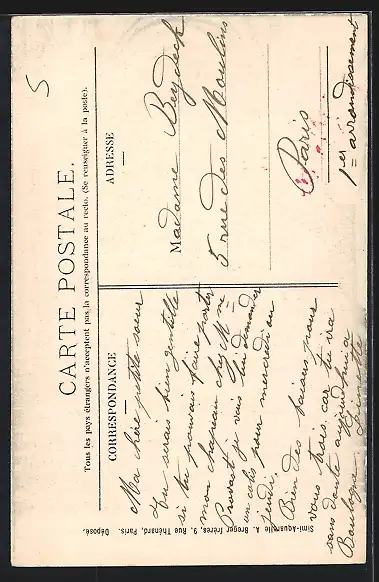 5
CARTE POSTALE.
Tous les pays étrangers n'acceptent pas la correspondance au recto. (Se renseigner à la poste).
CORRESPONDANCE
Ma chère petite soeur
tu serais bien gentille
si tu pouvais faire porter
mon chapeau chez Mme
Provost je vais lui demander
un colis pour mercredi ou
jeudi.
Bien des baisers pour
vous trois, car tu iras
sans doute aujourd'hui à
Boulogne
ADRESSE
Madame Beydeck
5 rue des Moulins
Paris
1er arrondissement
Simi-Aquarelle A. Breger frères, 9, Rue Thénard, Paris. Déposé.